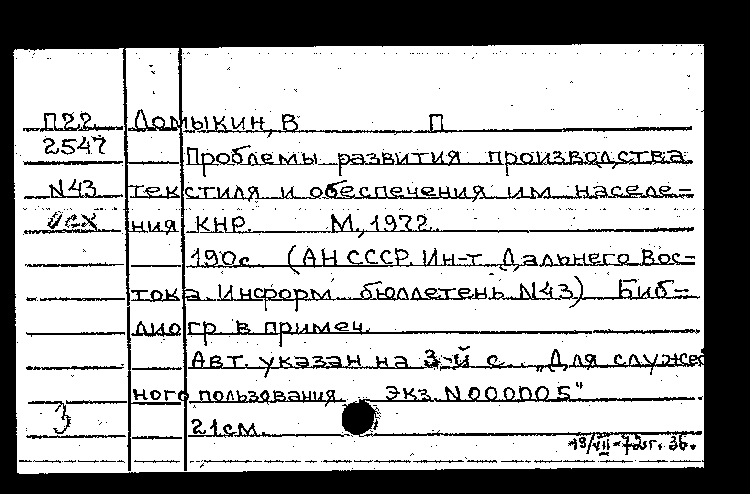 П22 Ломыкин, В П
2547 Проблемы развития производства
N43 текстиля и обеспечения им населе-
осх ния КНР. М, 1972.
190с (АН СССР. Ин-т Дальнего Вос-
тока. Информ. бюллетень N43) Биб-
лиогр в примеч.
Авт. указан на 3-й с. „Для служеб
ного пользования Экз. N000005"
3 21см.
19/VII-72г. 36.